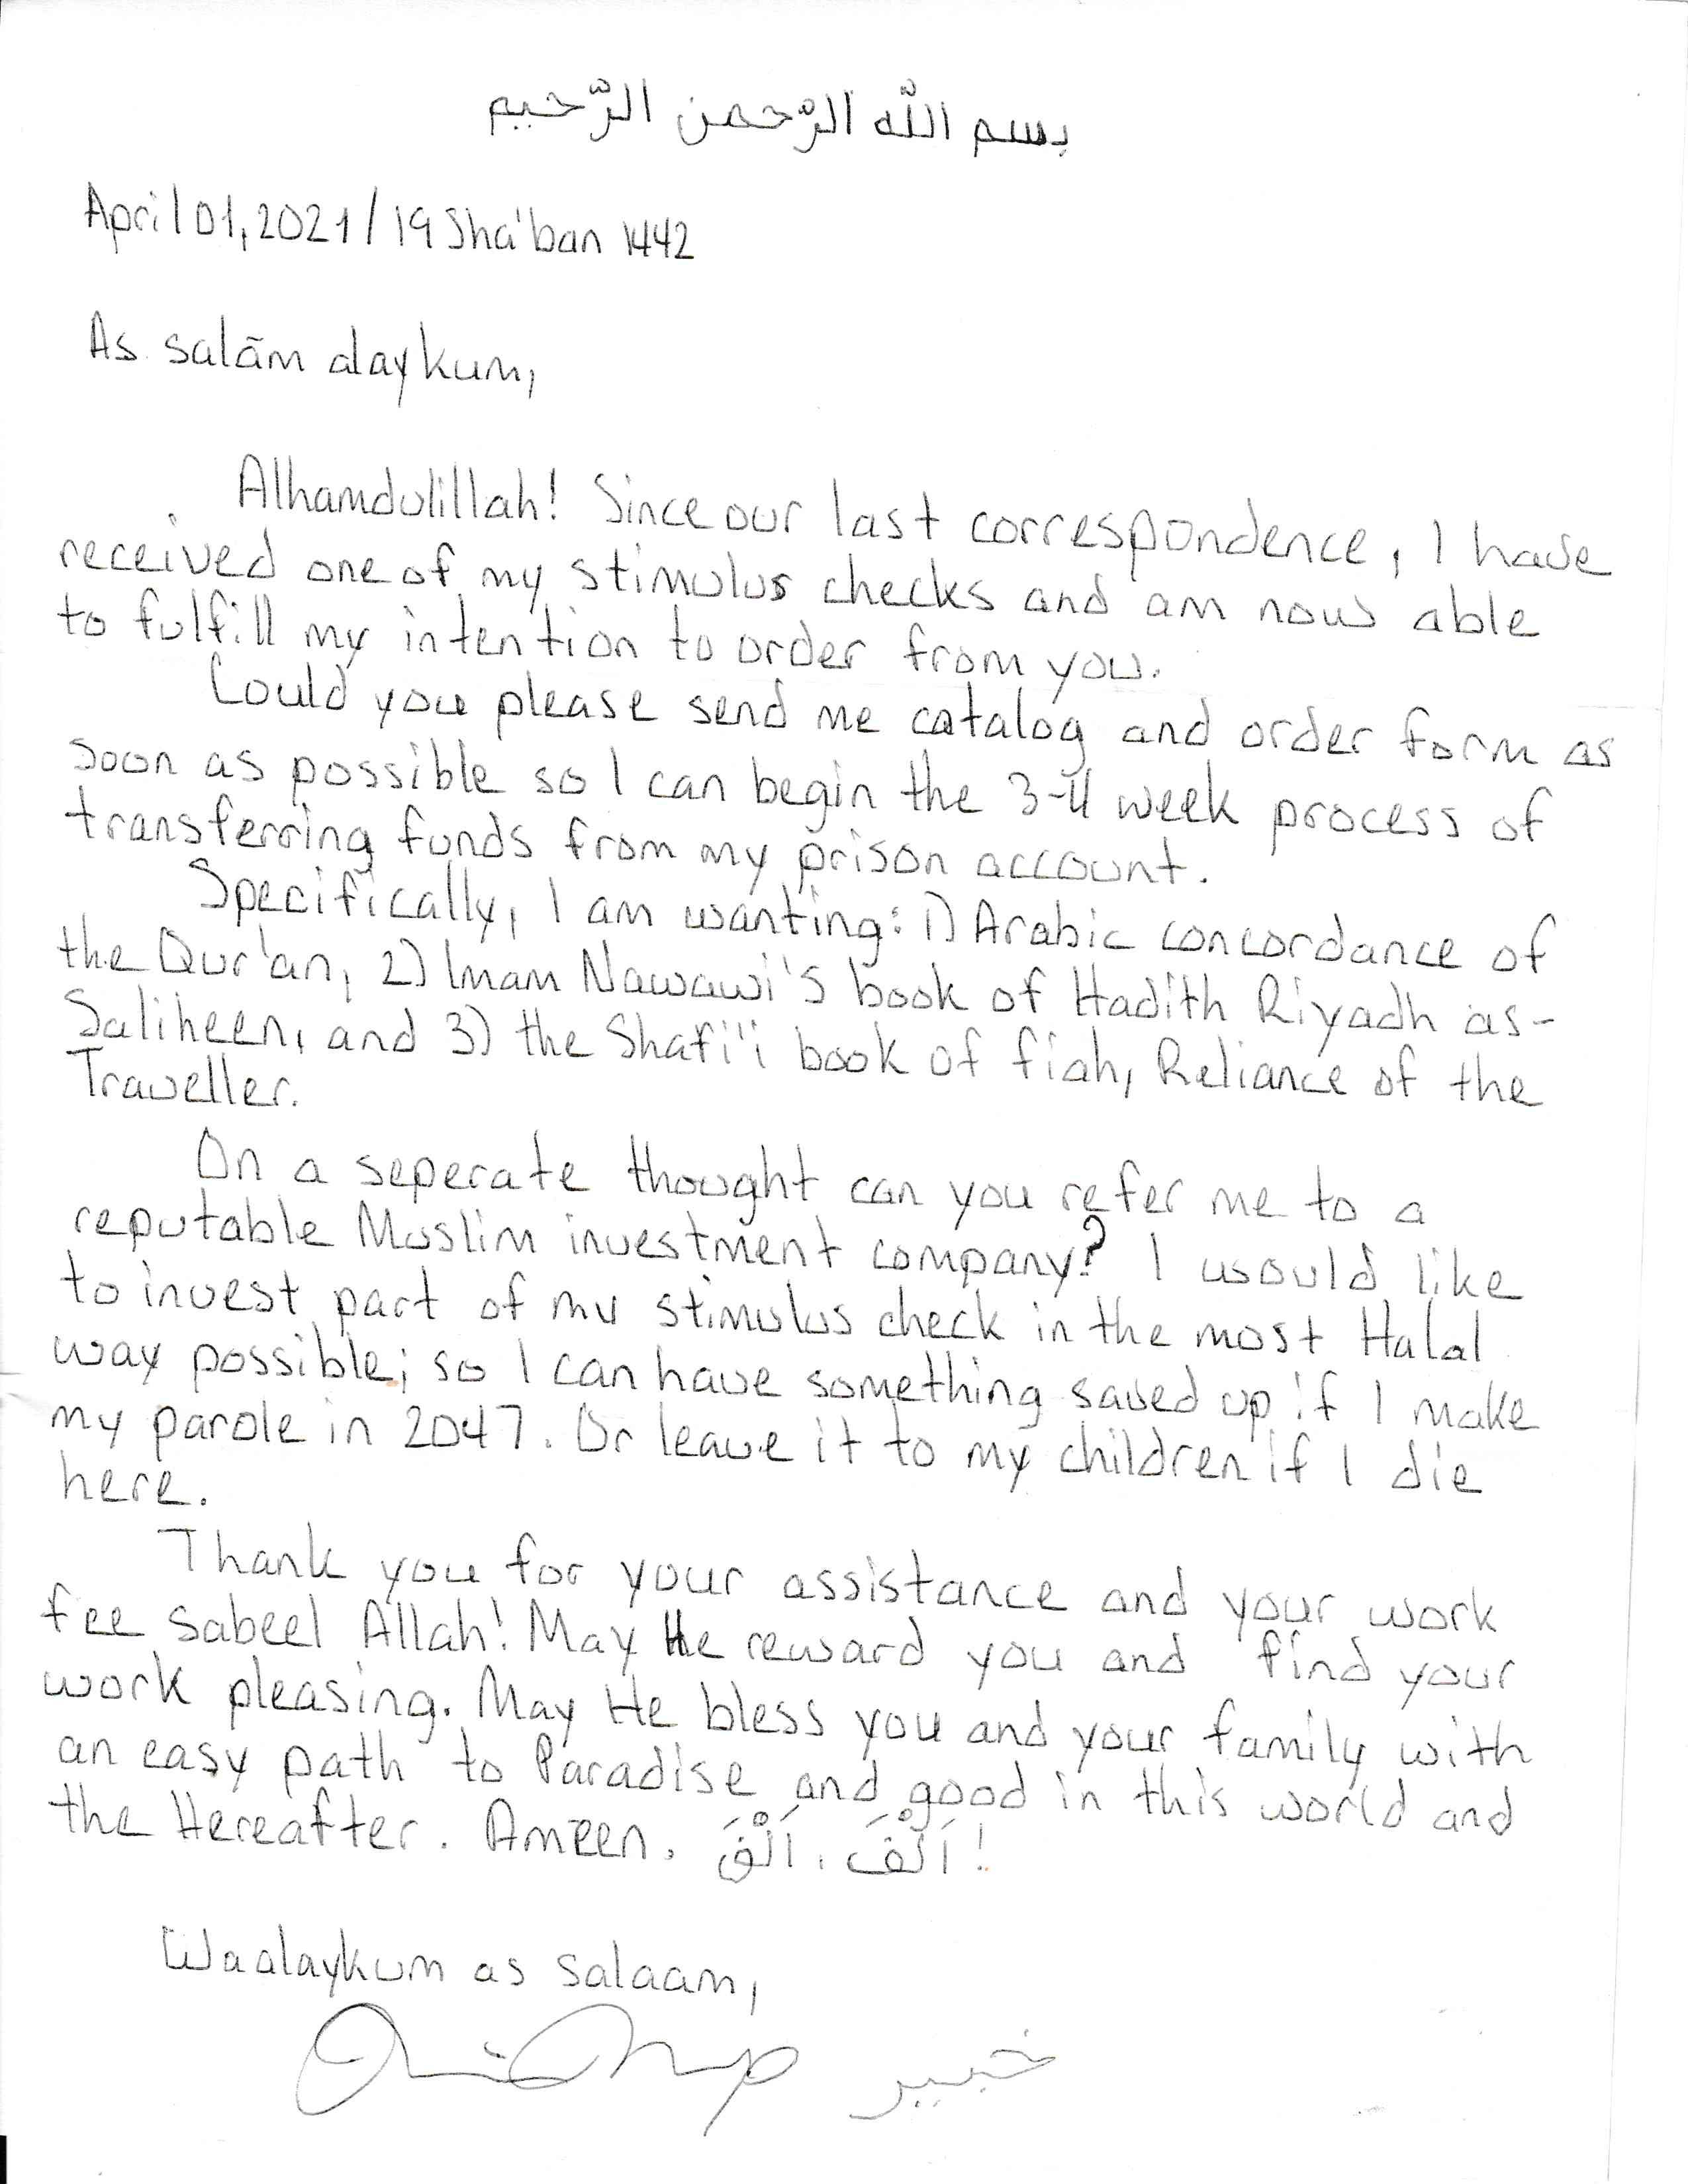 بسم اللّه الرّحمن الرّحيم
April 01, 2021 / 19 Sha'ban 1442
As salām alaykum,
Alhamdulillah! Since our last correspondence, I have
received one of my stimulus checks and am now able
to fulfill my intention to order from you.
Could you please send me catalog and order form as
soon as possible so I can begin the 3-4 week process of
transferring funds from my prison account.
Specifically, I am wanting: 1) Arabic concordance of
the Qur'an, 2) Imam Nawawi's book of Hadith Riyadh as-
Saliheen, and 3) the Shafi'i book of fiqh, Reliance of the
Traveller.
On a seperate thought can you refer me to a
reputable Muslim investment company? I would like
to invest part of my stimulus check in the most Halal
way possible; so I can have something saved up if I make
my parole in 2047. Or leave it to my children if I die
here.
Thank you for your assistance and your work
fee sabeel Allah! May He reward you and find your
work pleasing. May He bless you and your family with
an easy path to Paradise and good in this world and
the Hereafter. Ameen.
Waalaykum as salaam,
خبير